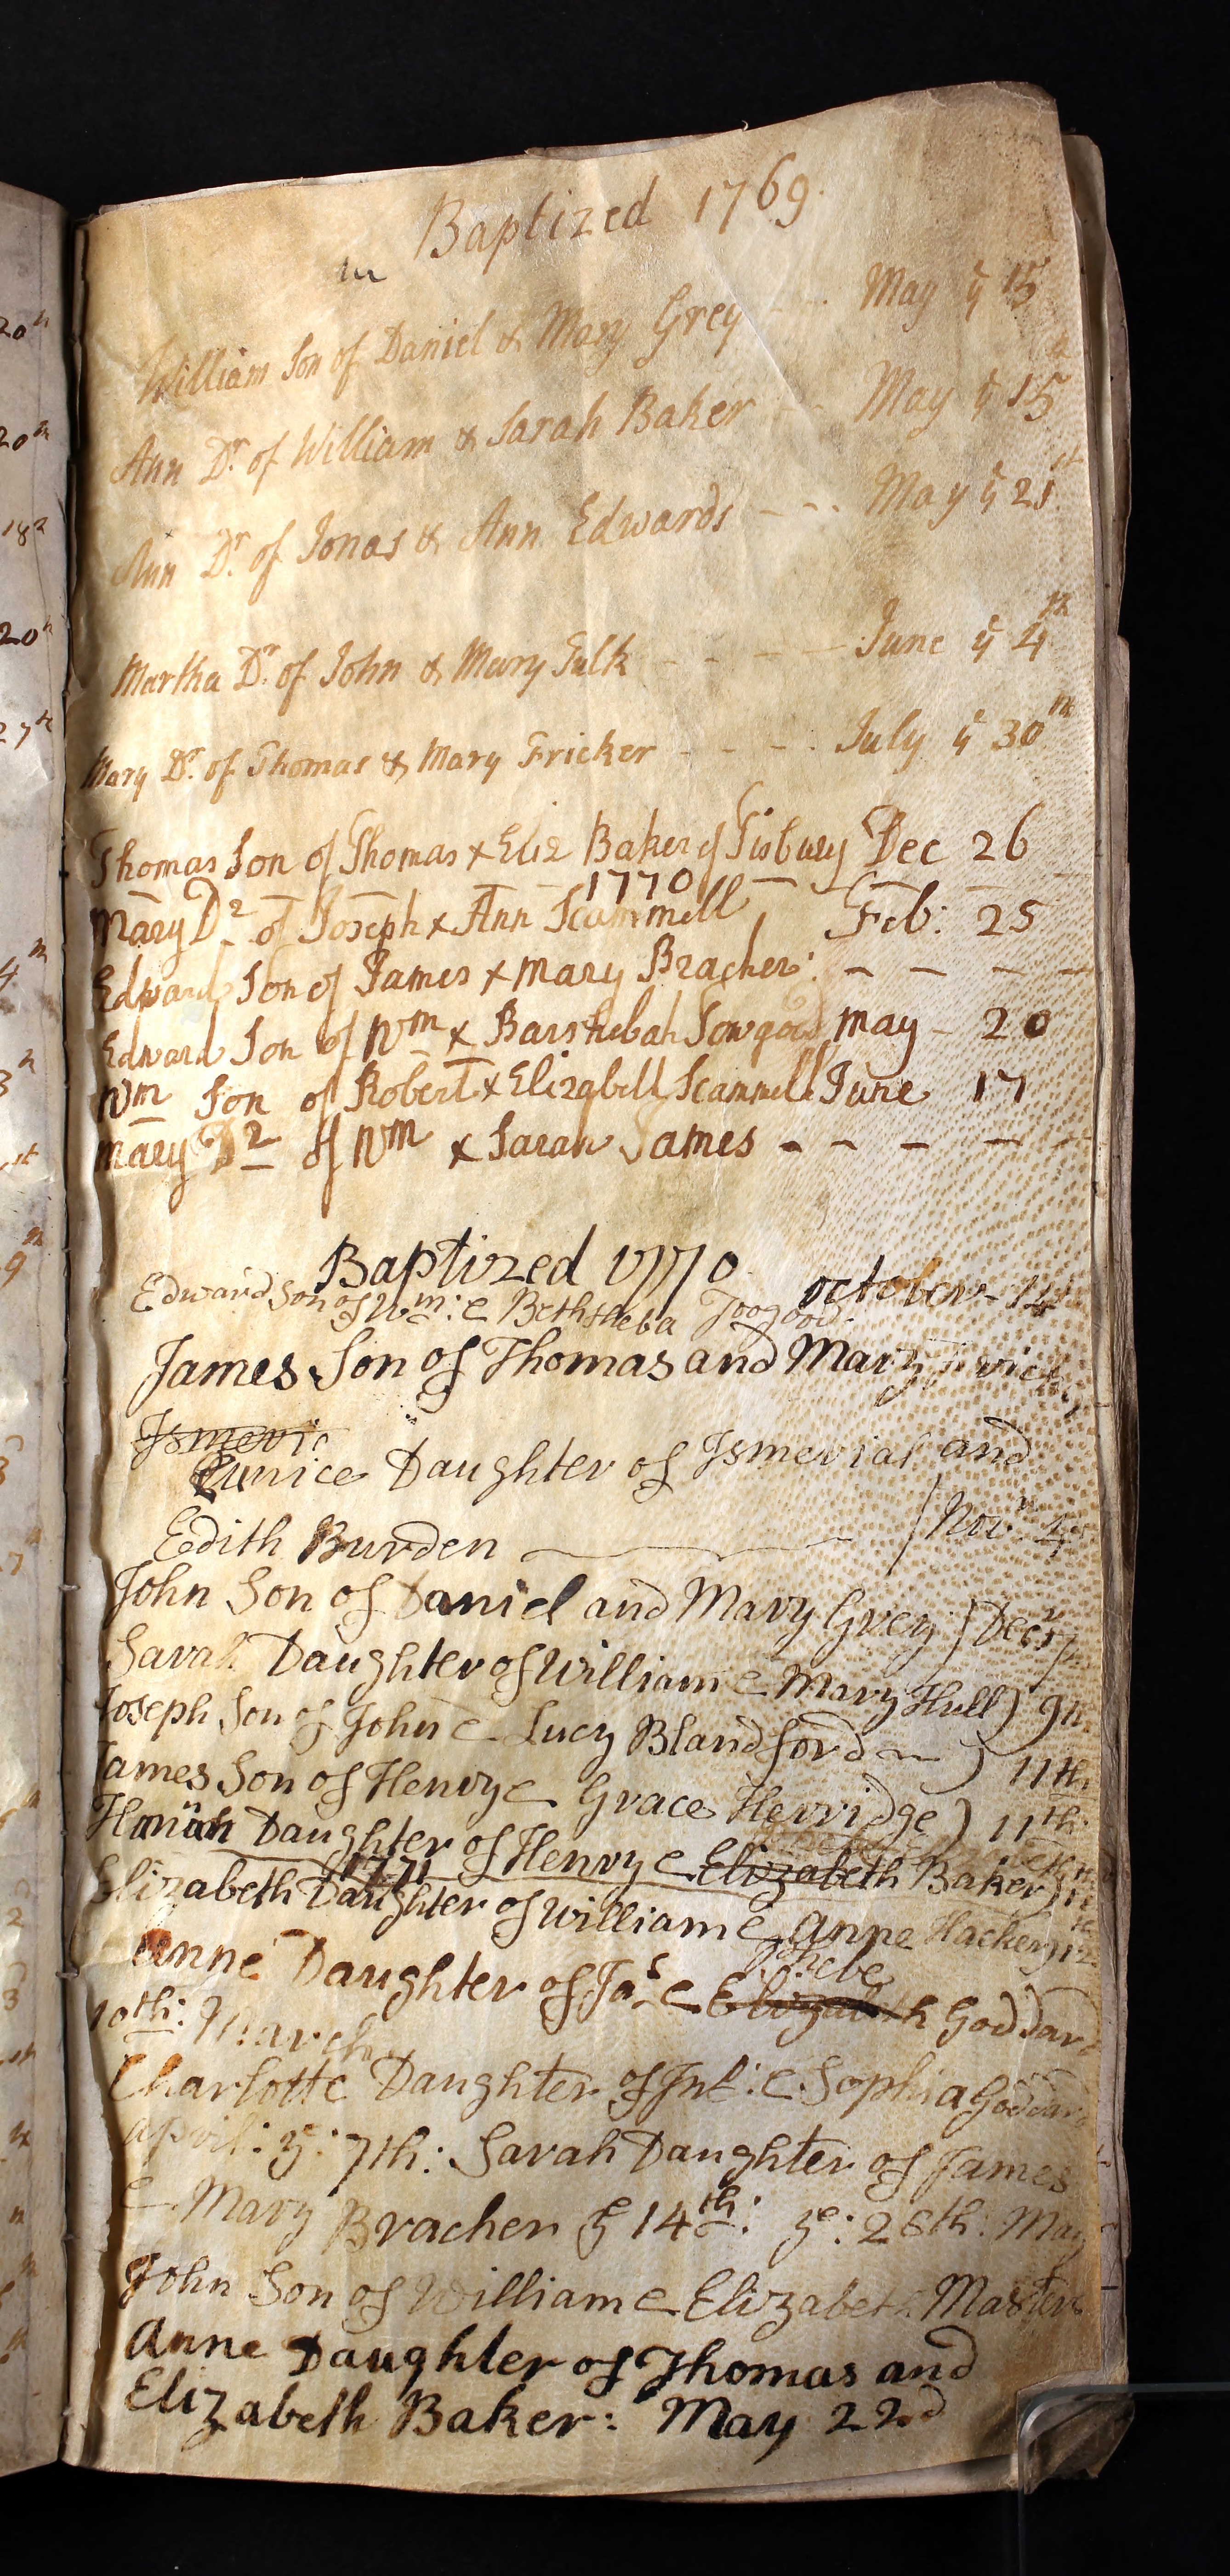 Baptized 1769.
in
William Son of Daniel & Mary Grey - - May ye 15
Ann Dr. of William & Sarah Baker - - May ye 15
Ann Dr. of Jonas & Ann Edwards - - - May ye 21st
Martha Dr. of John & Mary Fulk - - - - June ye 4th
Mary Dr. of Thomas & Mary Fricker - - - - July ye 30th
Thomas Son of Thomas & Eliz Baker of Tisbury Dec 26
1770
Mary Dr of Joseph & Ann Scammell Feb: 25
Edward Son of James & Mary Bracher: - - - -
Edward Son of Wm & Barshebah Towgood may - 20
Wm Son of Robert & Elizabeth Scammell June 17
Mary Dr of Wm & Sarah James - - - - -
Baptized 1770
october - 14
Edward Son of Wm: & Bethsheba Toogood
James Son of Thomas and Mary
Ismeria
Eunice Daughter of Ismerial and
Edith Burden Novr
John Son of Daniel and Mary Grey) Decr
Sarah Daughter of William & Mary Hull) 9th
Joseph Son of John & Lucy Blandford) 11th
James Son of Henry & Grace Herridge) 11th:
Hannah Daughter of Henry & Elizabeth Baker)
1771
Elizabeth Daughter of William & Anne Hacker
Phebe
Anne Daughter of Jas & Elizabeth Goddard
10th: March
Charlotte Daughter of Jn: & Sophia Goddard
april: ye: 7th: Sarah Daughter of James
& Mary Bracher ye 14th: ye: 28th: May
John Son of William & Elizabeth Masters
Anne Daughter of Thomas and
Elizabeth Baker: May 22d